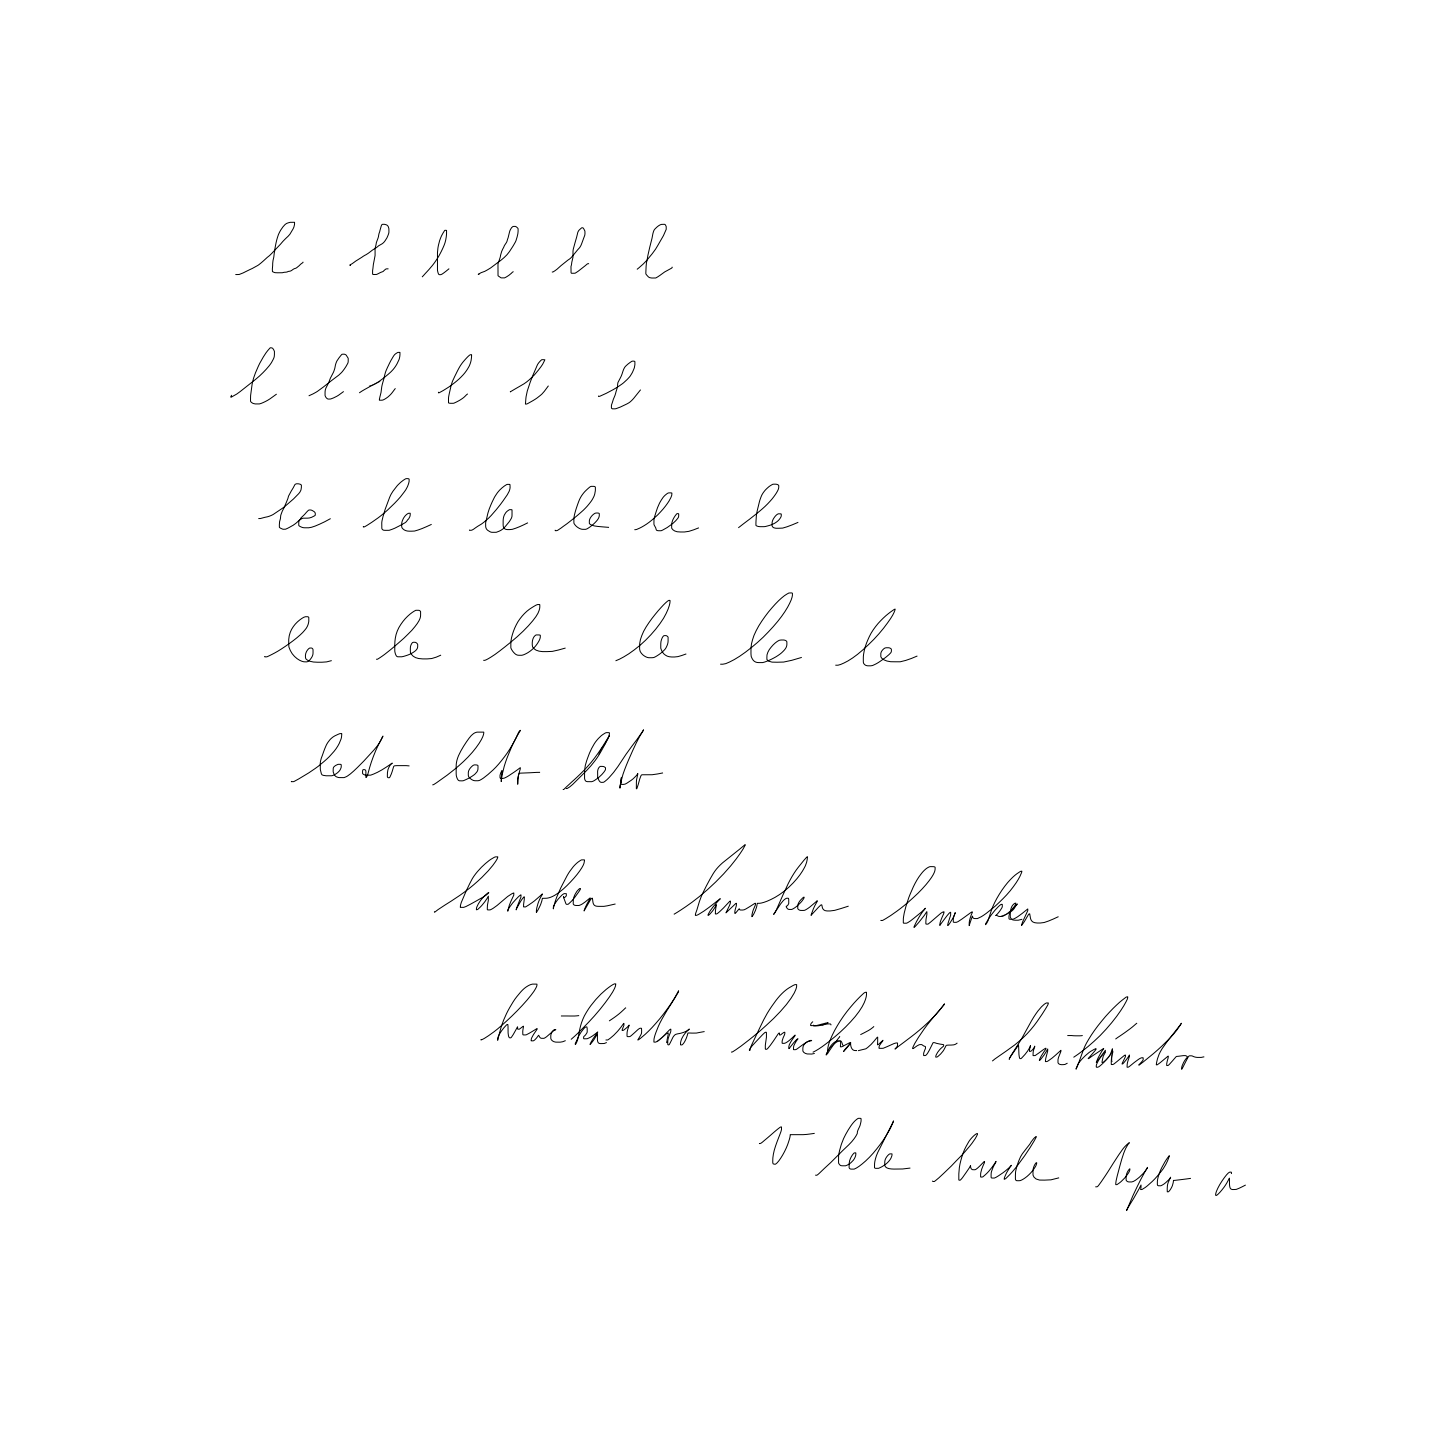 l l l l l l
l l l l l l
le le le le le le
le le le le le le
leto leto leto
lamoken lamoken lamoken
hračkárstvo hračkárstvo hračkárstvo
v lete bude teplo a